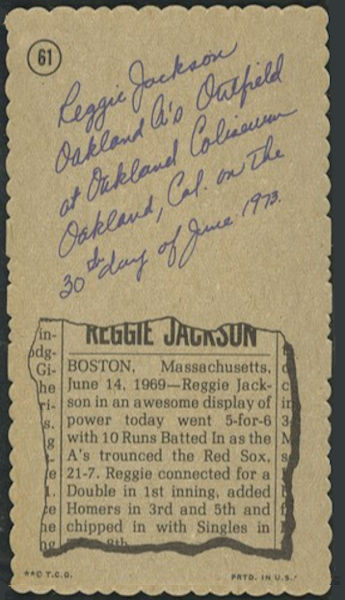 61
Reggie Jackson
Oakland A's Outfield
at Oakland Coliseum
Oakland, Cal. on the
30th day of June 1973.
REGGIE JACKSON
BOSTON, Massachusetts,
June 14, 1969—Reggie Jack-
son in an awesome display of
power today went 5-for-6
with 10 Runs Batted In as the
A's trounced the Red Sox,
21-7. Reggie connected for a
Double in 1st inning, added
Homers in 3rd and 5th and
chipped in with Singles in
8th
**© T.C.G.
PRTD. IN U.S.